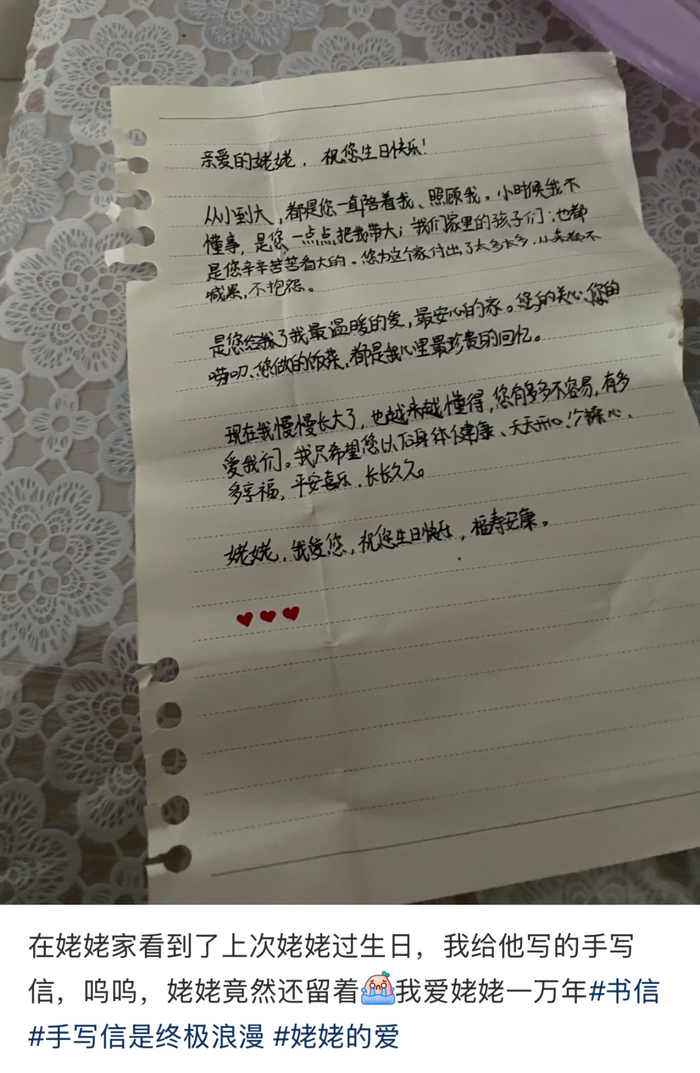 亲爱的姥姥，祝您生日快乐！
从小到大，都是您一直陪着我、照顾我。小时候我不
懂事，是您一点点把我带大；我们家里的孩子们，也都
是您辛辛苦苦看大的。您为这个家付出了太多太多，从来都不
喊累，不抱怨。
是您给我了我最温暖的爱，最安心的家。您的关心、您的
唠叨、您做的饭菜，都是我心里最珍贵的回忆。
现在我慢慢长大了，也越来越懂得，您有多多不容易，有多
爱我们。我只希望您以后身体健康、天天开心、少操心、
多享福，平安喜乐，长长久久。
姥姥，我爱您，祝您生日快乐，福寿安康。
在姥姥家看到了上次姥姥过生日，我给他写的手写
信，呜呜，姥姥竟然还留着我爱姥姥一万年#书信
#手写信是终极浪漫 #姥姥的爱